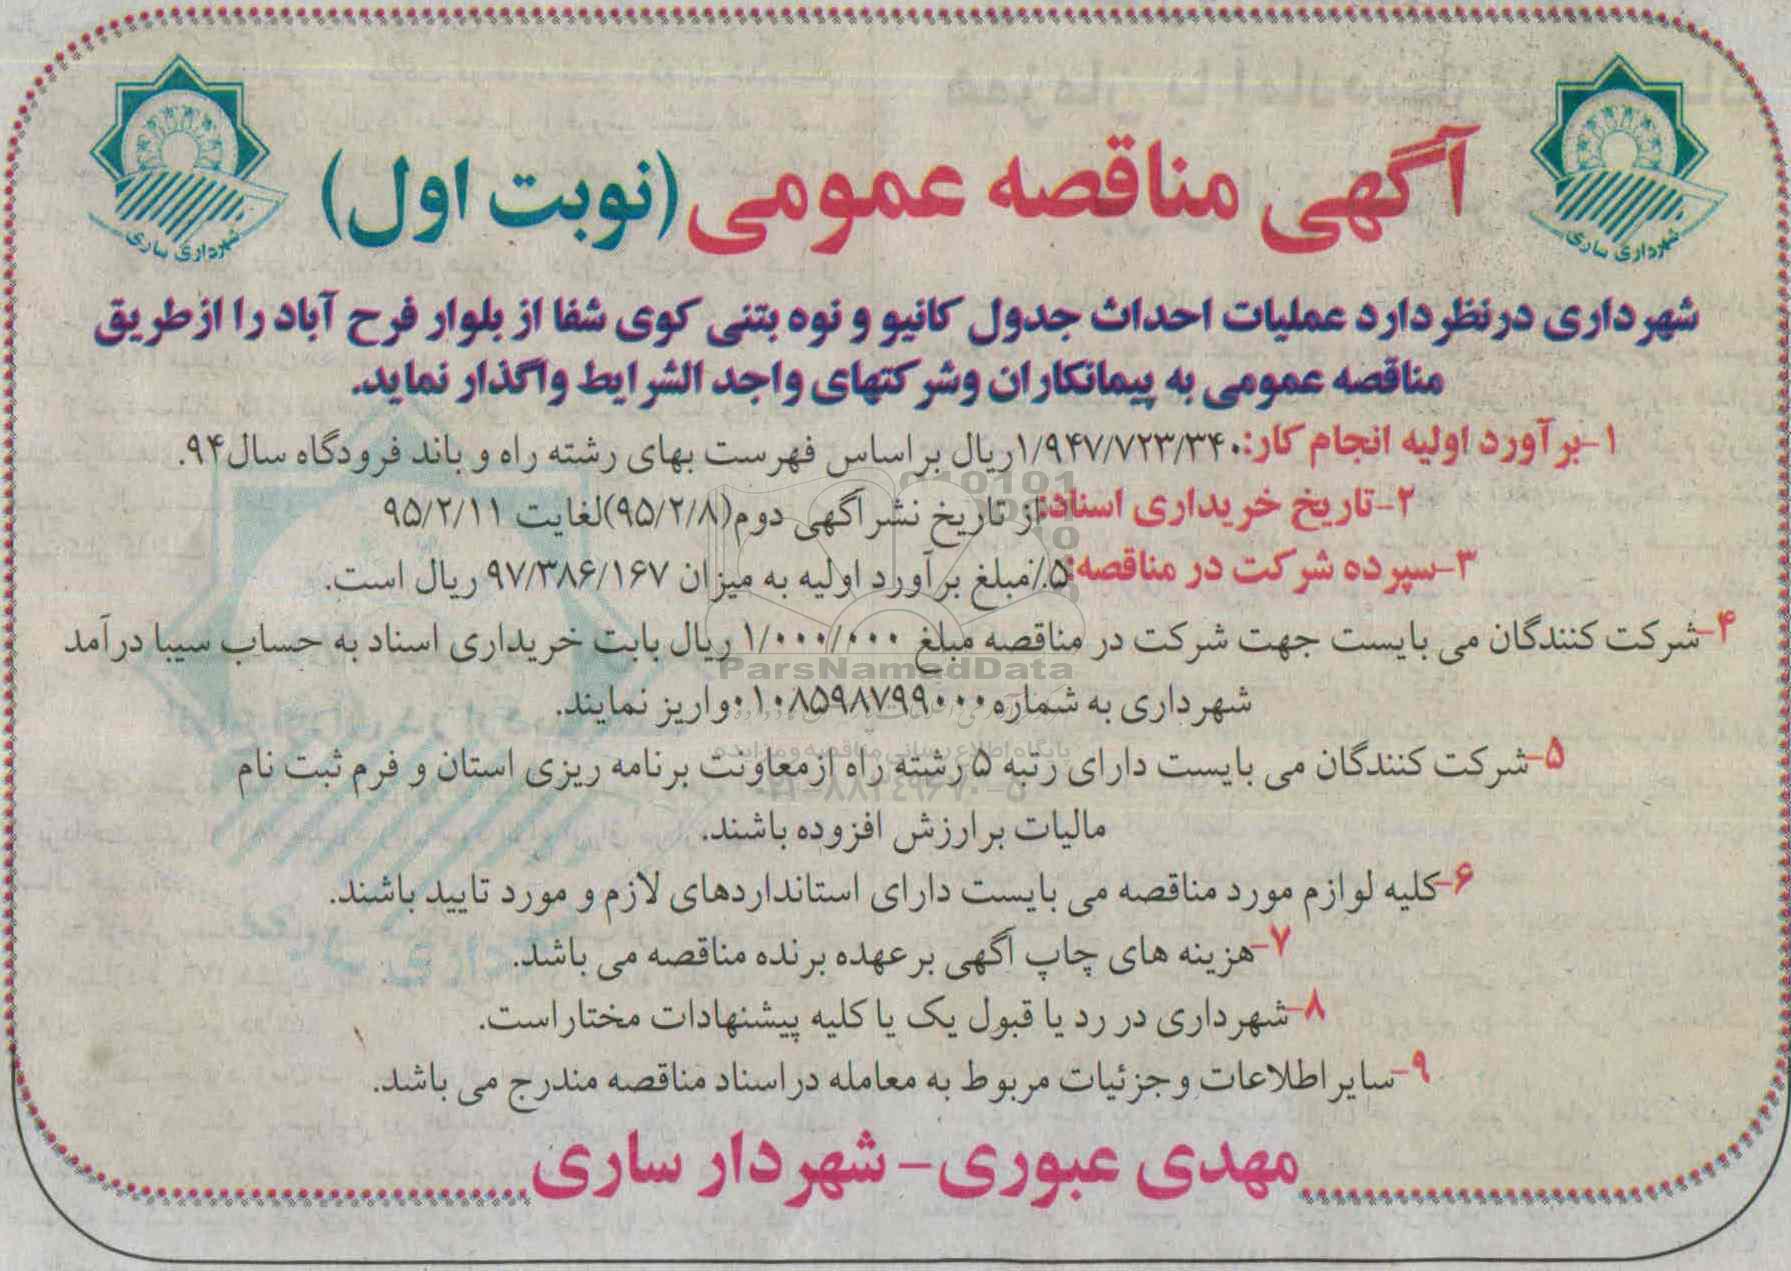 آگهی مناقصه عمومی (نوبت اول)
شهرداری ساری
شهرداری ساری
شهرداری درنظر دارد عملیات احداث جدول کانیو و نوه بتنی کوی شفا از بلوار فرح آباد را ازطریق
مناقصه عمومی به پیمانکاران وشرکتهای واجد الشرایط واگذار نماید.
۱-برآورد اولیه انجام کار: ۱/۹۴۷/۷۲۳/۳۴۰ریال براساس فهرست بهای رشته راه و باند فرودگاه سال۹۴.
۲-تاریخ خریداری اسناد:از تاریخ نشرآگهی دوم(۹۵/۲/۸)لغایت ۹۵/۲/۱۱
۳-سپرده شرکت در مناقصه:۵٪مبلغ برآورد اولیه به میزان ۹۷/۳۸۶/۱۶۷ ریال است.
۴-شرکت کنندگان می بایست جهت شرکت در مناقصه مبلغ ۱/۰۰۰/۰۰۰ ریال بابت خریداری اسناد به حساب سیبا درآمد
شهرداری به شماره۰۱۰۸۵۹۸۷۹۹۰۰۰واریز نمایند.
۵-شرکت کنندگان می بایست دارای رتبه ۵ رشته راه ازمعاونت برنامه ریزی استان و فرم ثبت نام
مالیات برارزش افزوده باشند.
۶-کلیه لوازم مورد مناقصه می بایست دارای استانداردهای لازم و مورد تایید باشند.
۷-هزینه های چاپ آگهی برعهده برنده مناقصه می باشد.
۸-شهرداری در رد یا قبول یک یا کلیه پیشنهادات مختاراست.
۹-سایراطلاعات وجزئیات مربوط به معامله دراسناد مناقصه مندرج می باشد.
مهدی عبوری- شهردار ساری
ParsNamadData
پایگاه اطلاع رسانی مناقصه و مزایده
۰۲۱-۸۸۳۴۹۶۷۰-۵